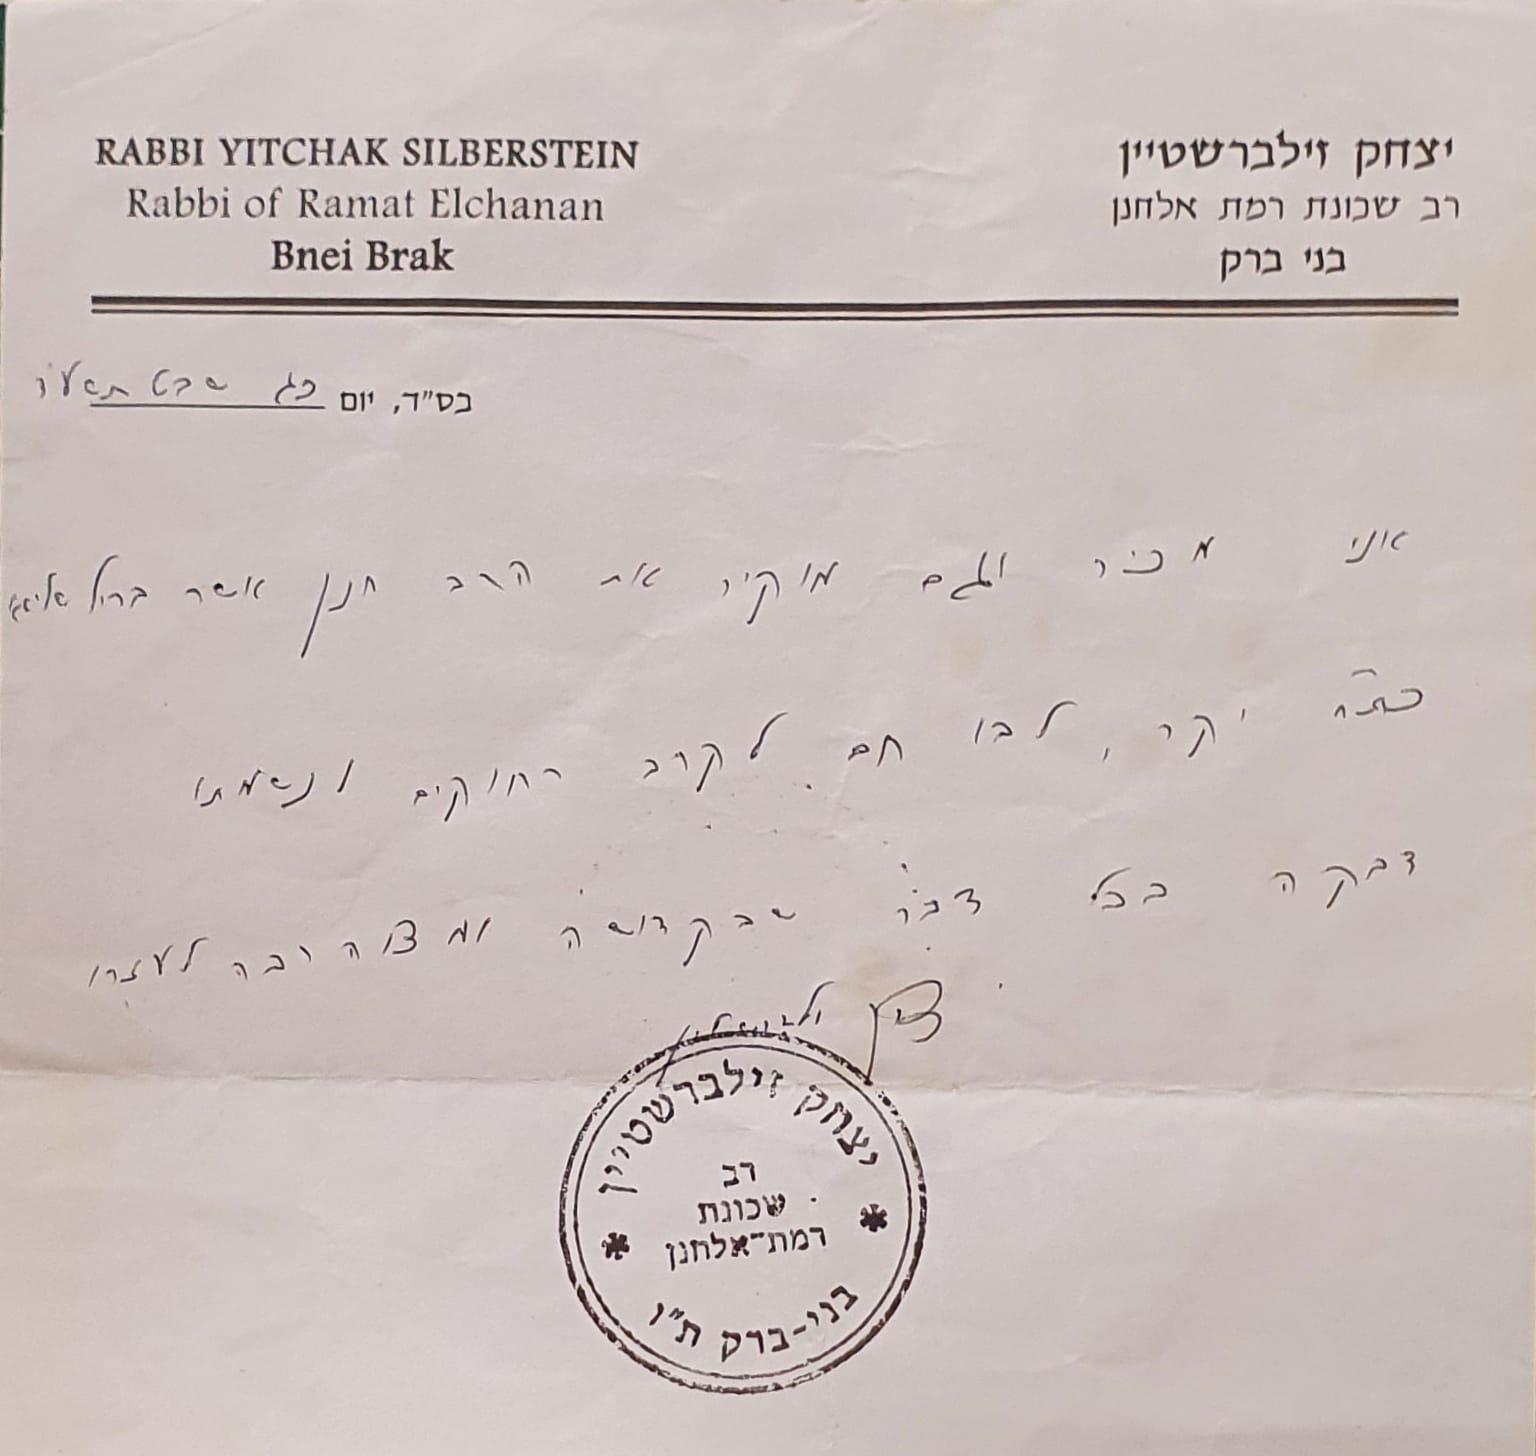 RABBI YITCHAK SILBERSTEIN
Rabbi of Ramat Elchanan
Bnei Brak
יצחק זילברשטיין
רב שכונת רמת אלחנן
בני ברק
בס"ד, יום כג שבט תשע"ו
אני מכיר וגם מוקיר את הרב חנן אשר בריל
יקר, לבו חם לקרב רחוקים ונשמתו
דבקה בכל דבר שבקדושה ומצוה רבה לעזרו
יצחק זילברשטיין
יצחק זילברשטיין
רב
שכונת
רמת-אלחנן
בני-ברק ת"ו